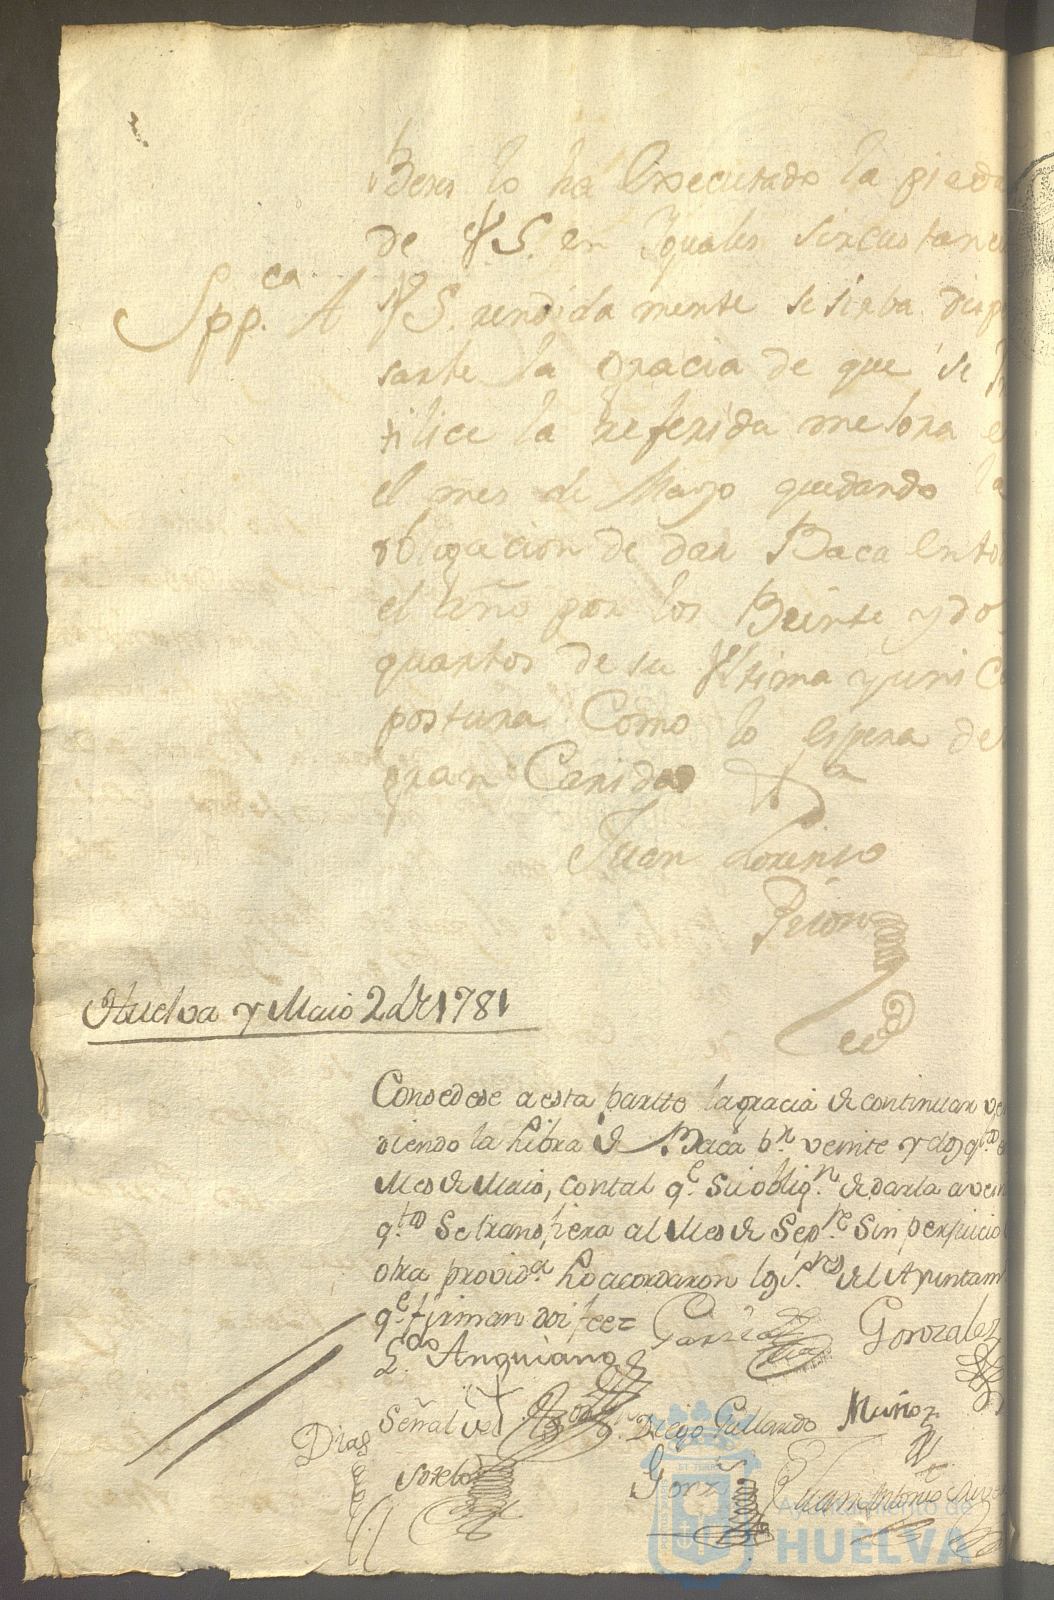 Beses lo ha Executado la pieda
de V.S. en Yguales sircustanci
Spp.ca A V.S. rendida mente se sirba disp
sarle la gracia de que se h
tilice la referida mejora e
el mes de Mayo quedando la
obligacion de dar Baca Ento
el año por los Beinte y do
quartos de su Vltima y uni C
postura Como lo espera de
gran Caridad
Juan Lorenso
Peion
Huelva y Maio 2 de 1781
Consedese a esta parte la gracia de continuar ve
diendo la Libra de Baca p.r veinte y dos q.tos
Mes de Maio, con tal q.e su oblig.n de darla a vein
q.tos Se transfiera al Mes de Sep.re Sin perjuicio
otra provid.a Lo acordaron los S.res del Ayuntam
q.e firman doi fee=
Garzia
Gonzalez
L.do Anguiano
Señal de
Diego Gallardo
Muñoz
Dias
Sotelo
Gonz
Juan Antonio
Ayuntamiento de
HUELVA